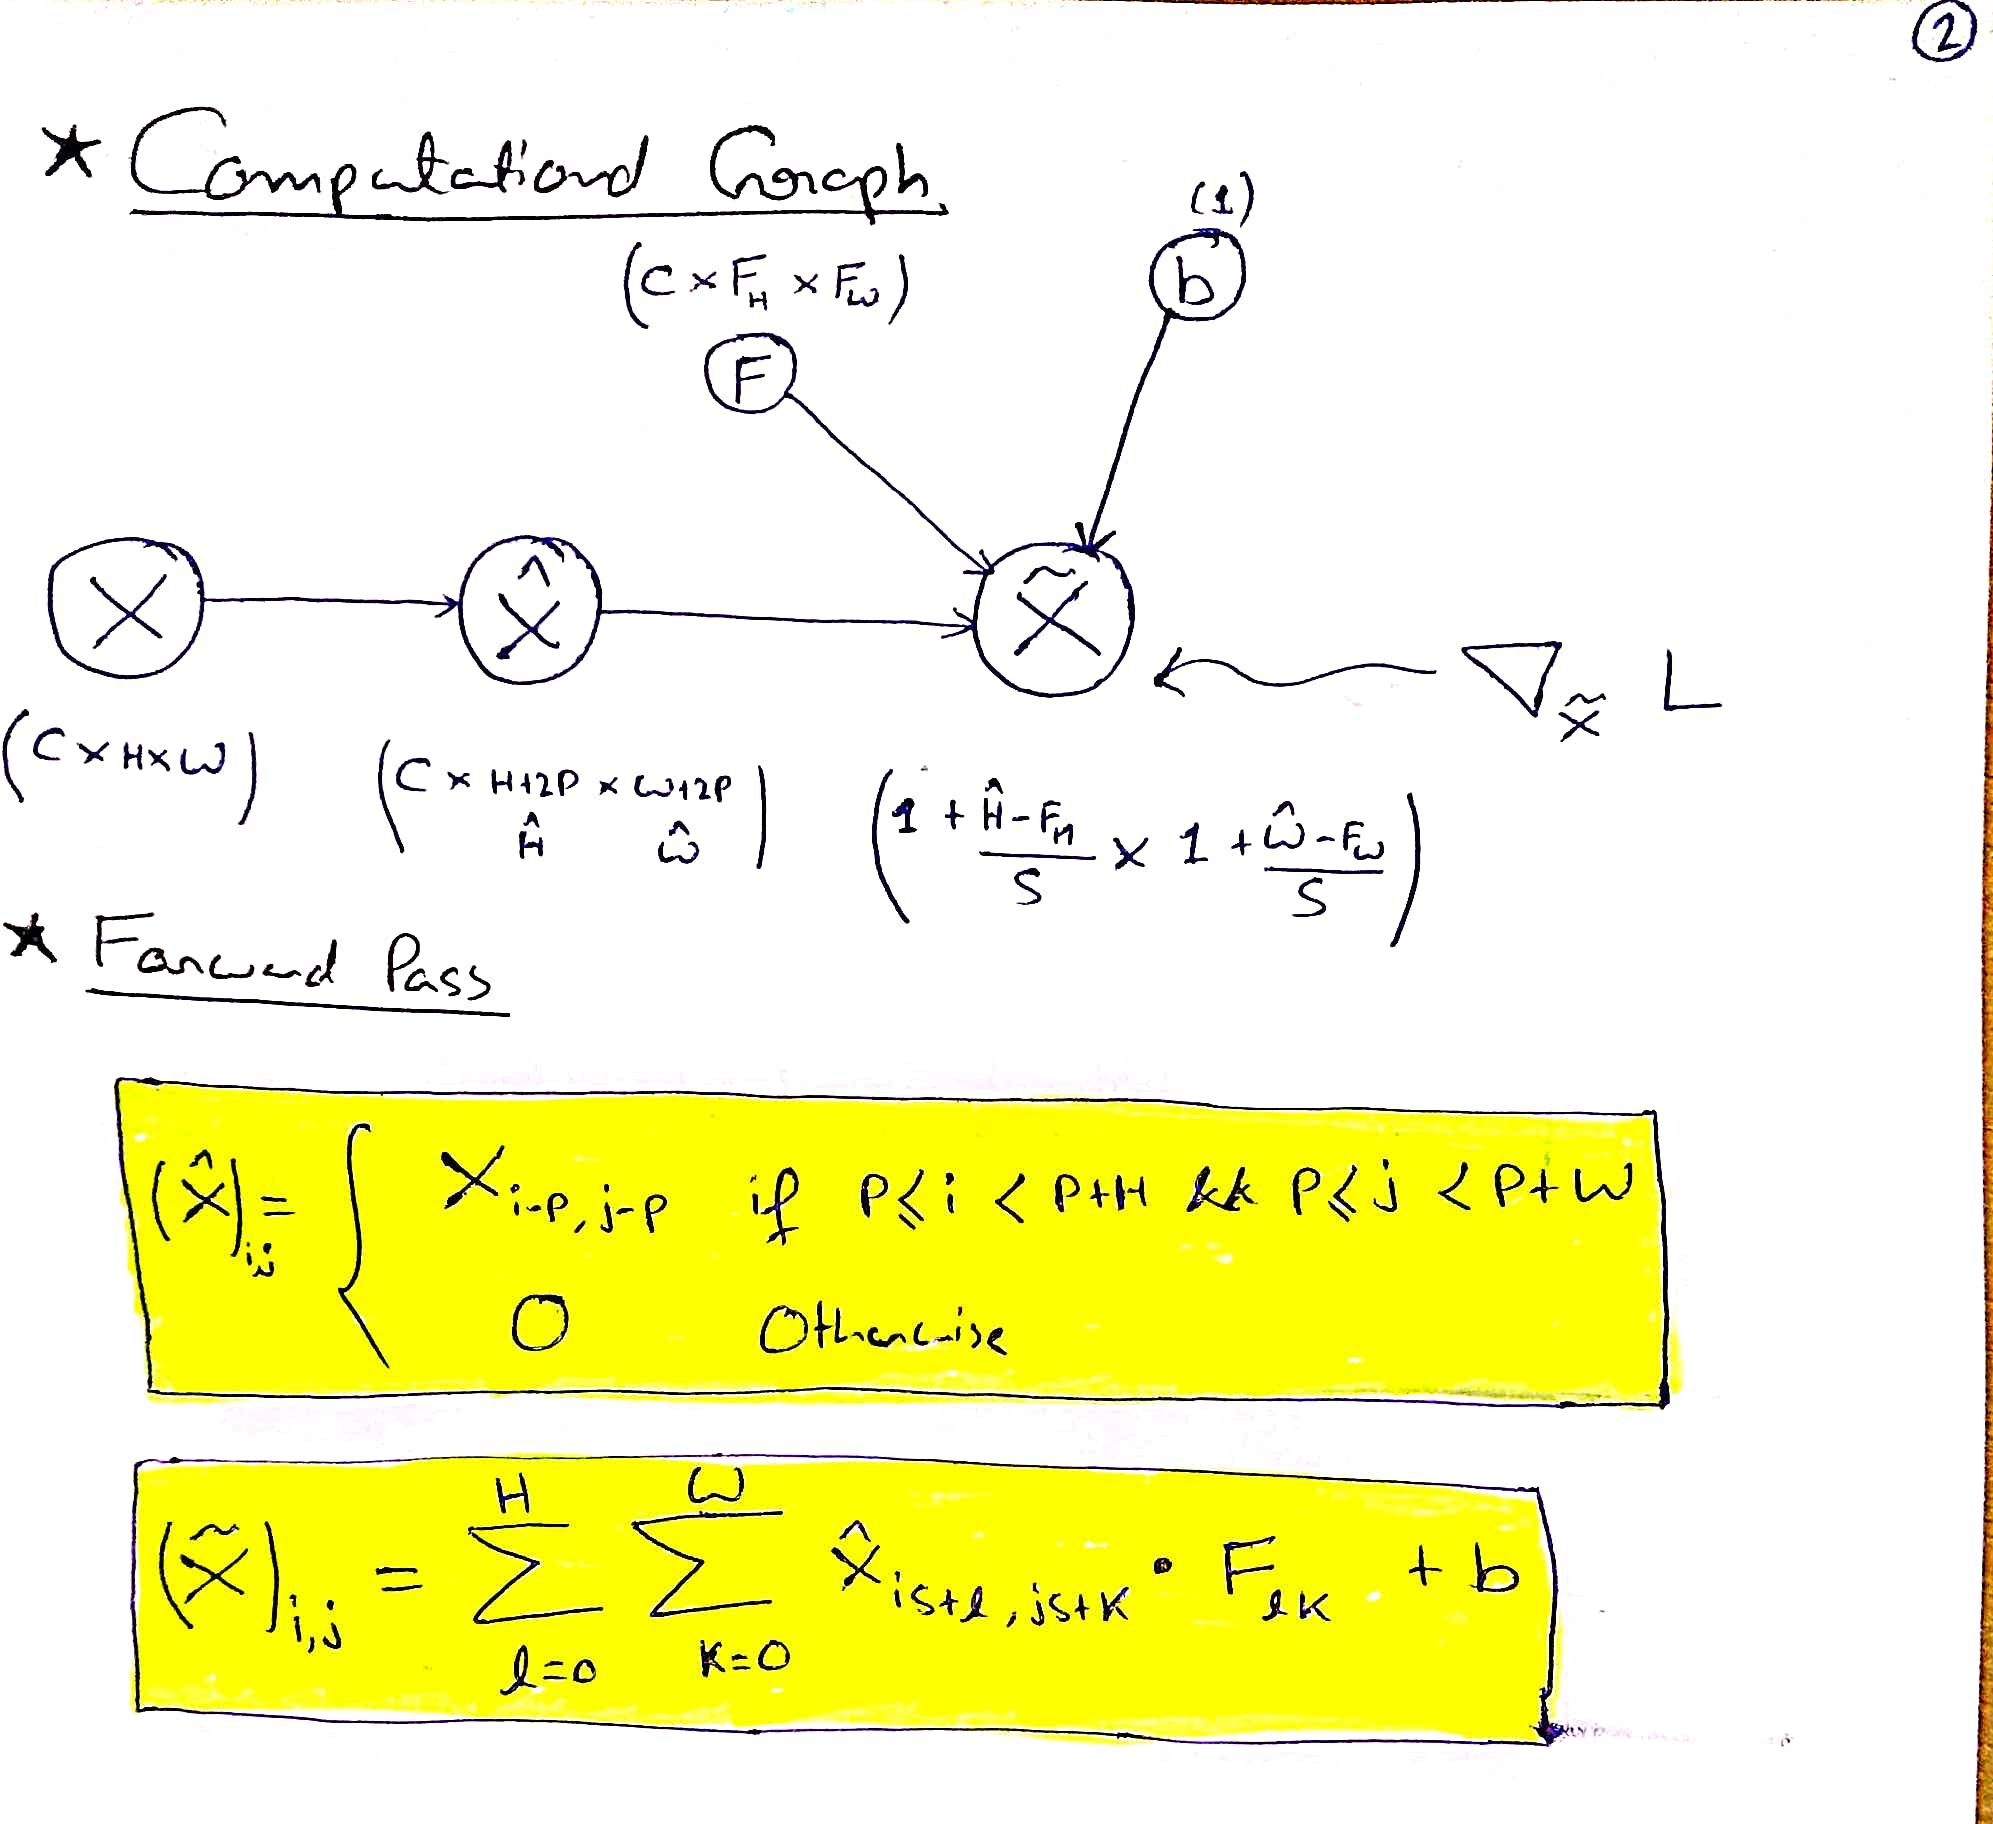 ②
★ Computational Graph.
(1)
(C × F_H × F_W)
b
F
X
X̂
X̃
∇_X̃ L
(C × H × W)
(C × H+2P × W+2P)
Ĥ Ŵ
(1 + Ĥ-F_H / S × 1 + Ŵ-F_W / S)
★ Forward Pass
(X̂)_ij = { X_i-P, j-P if P ≤ i < P+H && P ≤ j < P+W
0 Otherwise
(X̃)_i,j = Σ_{l=0}^{H} Σ_{k=0}^{W} X̂_is+l, js+k · F_lk + b